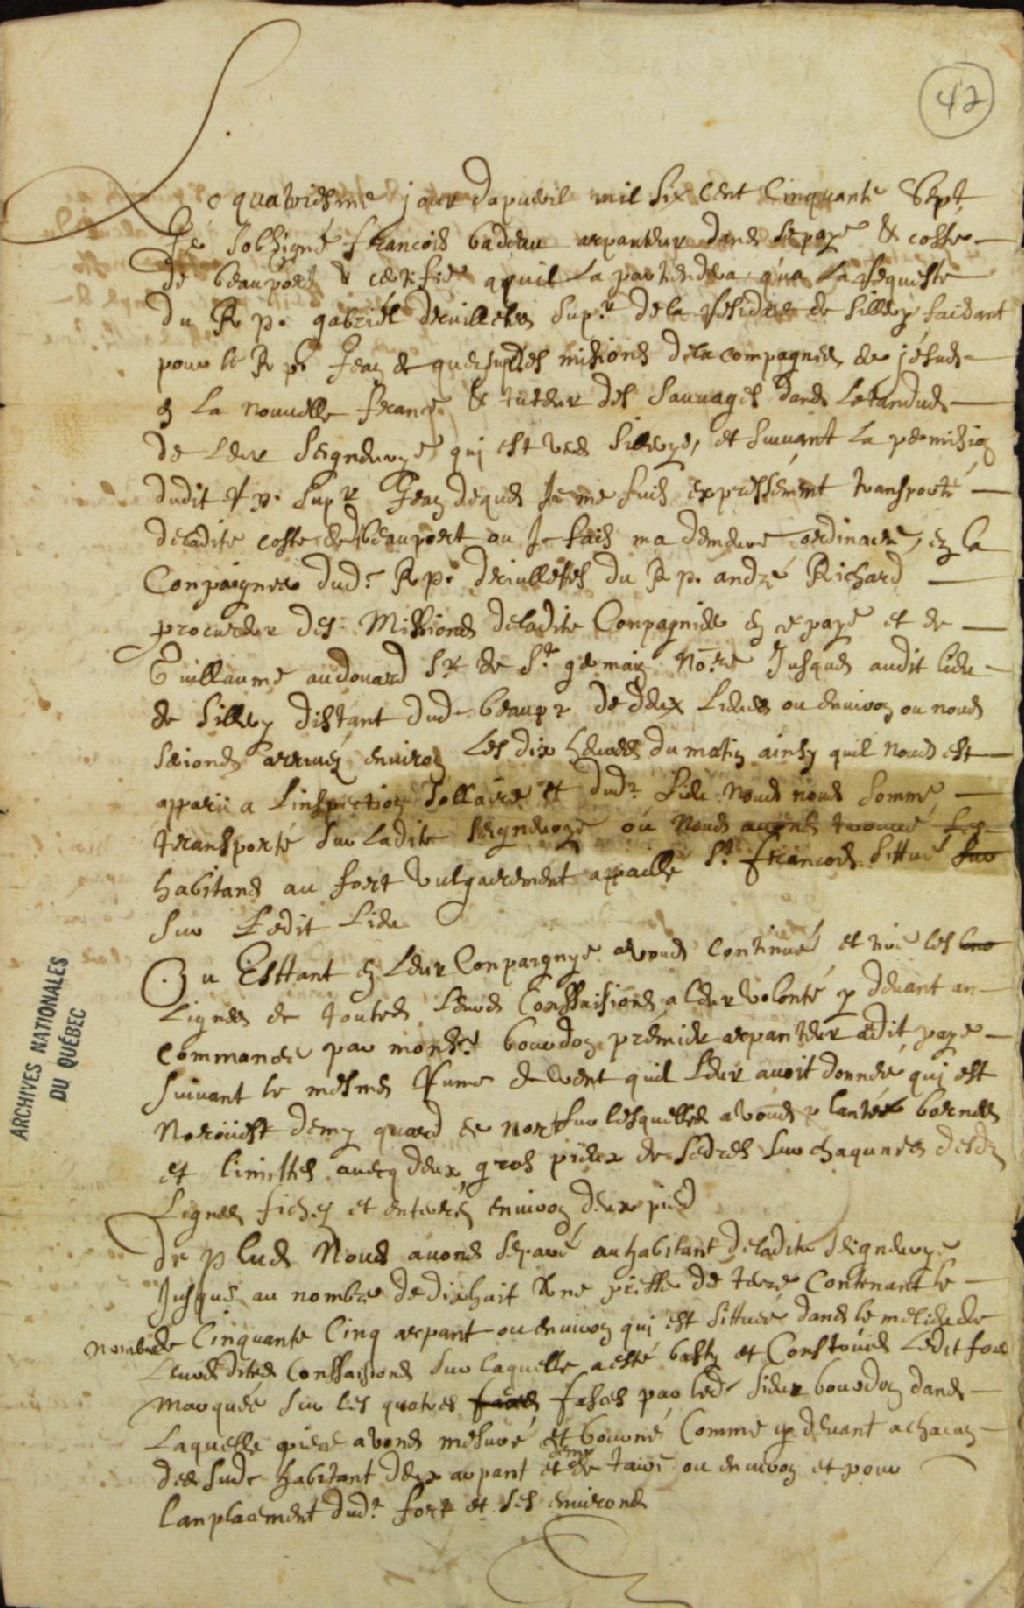 42
Le quatriesme jour dapvril mil six cent cinquante sept
Je sobsigné francois badeau arpanteur dans se paye & coste
de beauport & certifie a quil la partiendra qua la requeste
du R p. gabriel deruilletes sup.r de la residze de sillery faisant
pour le R p. Jean de quer sup des misions dela compagnie de jesus
en la nouuelle france & tuteur des sauuages dans letandue
de leur seigneurye qui est vers sillerye, et suiuant la permision
dudit R p. sup.r Jean dequer Je me suis expressement transporté
deladite coste de beauport ou Je fais ma demeure ordinaire, en la
Conpaignie dud.t R p. deruilletes du R p. andré Richard
procureur des Missions deladite Conpagnie en ce paye et de
Guillaume audouard S.r de S.t germain No.re Jusques audit lieu
de sillery distant dud. beaup.r de deux lieues ou enuiron ou nous
serions arriuez enuiron les dix heures du matin ainsy quil nous est
apparu a linspection sollaire et dud.t lieu nous nous somme
transporté sur ladite seigneurye ou nous auons trouué les
habitans au fort vulgairement appaelle S.t francois sittué sur
sur ledit lieu
Ou Esttant en leur Conpaignye avons continué et tiré les
lignes de toutes leurs Conssaisions a leur volonté cy deuant
commancé par mons.r bourdon premier arpanteur audit paye
suiuant le mesmes Rume de vent quil leur auoit donnée qui est
Norouest demy quard de nort sur lesquelles avons plantés bornes
et limittes auecq deux gros pieux de sedres sur chaqunes desd.
lignes fichez et enterez enuiron deux pied
de plus Nous auons separé au habitant deladite seigneurye
Jusques au nombre de dixhuit Une piesse de terre Contenant le
nombre de Cinquante Cinq arpant ou enuiron qui est sittuée dans le melieu de
leurs dites Conssaisions sur laquelle a esté basty et Construis ledit fort
marquée sur les quatres fases par led. sieur bourdon dans
Laquelle piese avons mesuré et bourné Comme cy deuant a chacun
des sud. habitant deux arpant et demy de terre ou enuiron et pour
lanplacement dud.t fort et ses enuirons
ARCHIVES NATIONALES
DU QUÉBEC